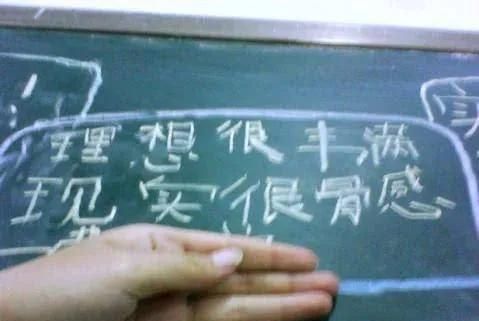 理想很丰满
现实很骨感
实